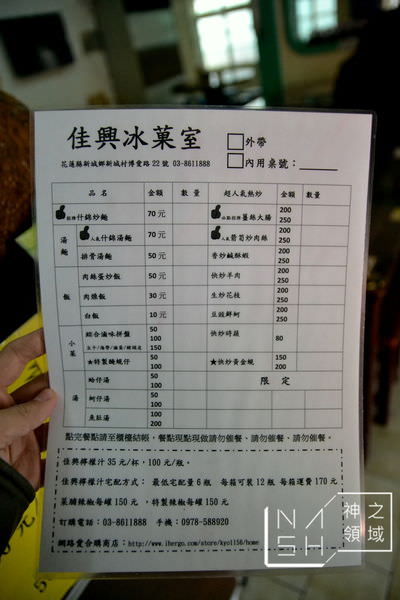 佳興冰菓室
□外帶
花蓮縣新城鄉新城村博愛路22號 03-8611888
□內用桌號：
品名 金額 數量 超人氣熱炒 金額 數量
招牌什錦炒麵 70元 薑絲大腸 200 250
湯麵 人氣什錦湯麵 70元 人氣箭筍炒肉絲 200 250
排骨湯麵 50元 香炒鹹酥蝦 200 250
飯 肉絲蛋炒飯 50元 快炒羊肉 200 250
肉燥飯 30元 生炒花枝 200 250
白飯 10元 豆豉鮮蚵 200 250
小菜 綜合滷味拼盤 50 100 150 快炒時蔬 80
★特製醃蜆仔 50 100 ★快炒黃金蜆 150 200
湯 蛤仔湯 50 100 限定
蚵仔湯 50 100
魚肚湯 100 200
點完餐點請至櫃檯結帳，餐點現點現做請勿催餐、請勿催餐、請勿催餐。
佳興檸檬汁 35元/杯，100元/瓶。
佳興檸檬汁宅配方式： 最低宅配量6瓶 每箱可裝12瓶 每箱運費170元
菜脯辣椒每罐150元 ，特製辣椒每罐150元
訂購電話：03-8611888 手機：0978-588920
網路愛合購商店：http://www.ihergo.com/store/kyo1156/home
NASH 神之領域